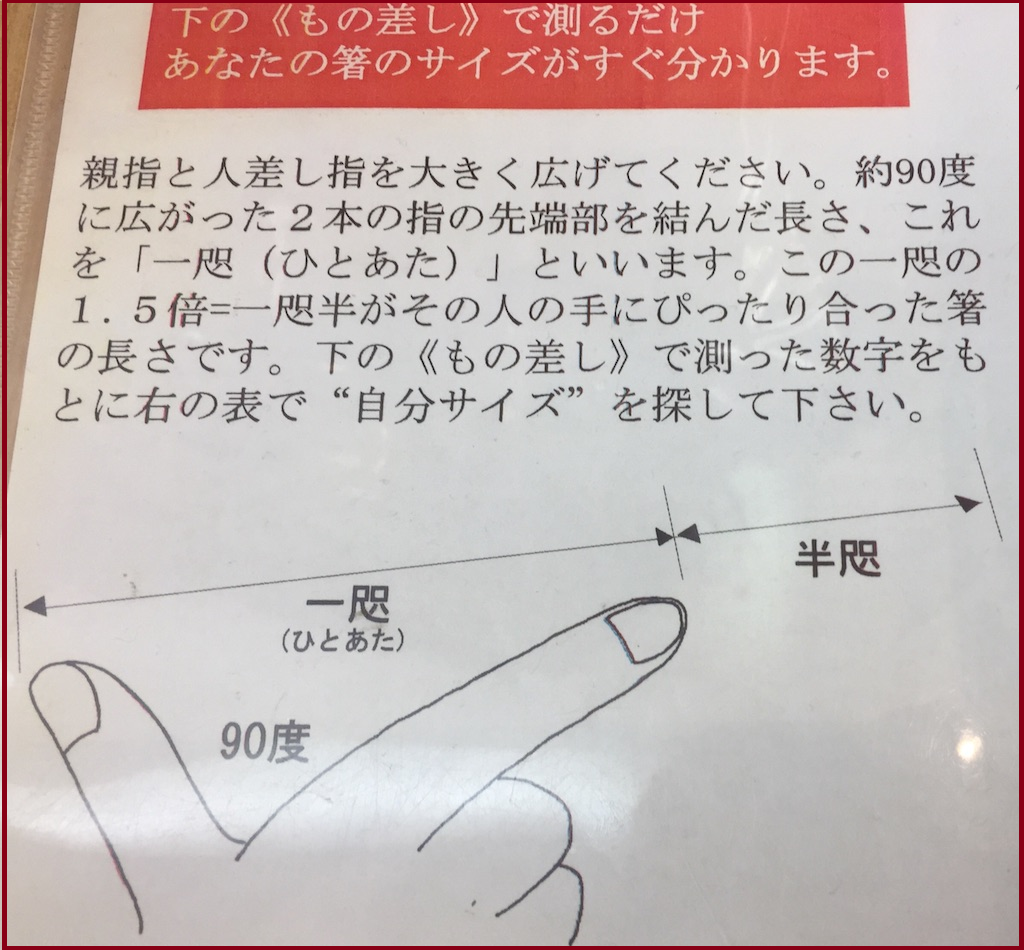 下の《もの差し》で測るだけ
あなたの箸のサイズがすぐ分かります。
親指と人差し指を大きく広げてください。約90度
に広がった２本の指の先端部を結んだ長さ、これ
を「一咫（ひとあた）」といいます。この一咫の
１．５倍=一咫半がその人の手にぴったり合った箸
の長さです。下の《もの差し》で測った数字をも
とに右の表で“自分サイズ”を探して下さい。
半咫
一咫
(ひとあた)
90度